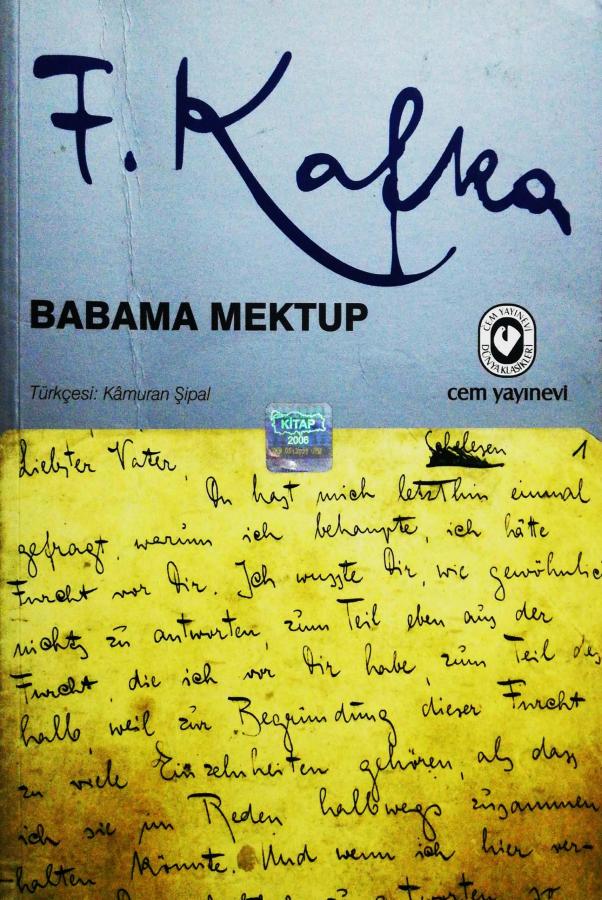 F. Kafka
BABAMA MEKTUP
CEM YAYINEVİ
DÜNYA KLASİKLERİ
Türkçesi: Kâmuran Şipal
cem yayınevi
KİTAP
2006
Liebster Vater,
1
Du hast mich letzthin einmal
gefragt, warum ich behaupte, ich hätte
Furcht vor Dir. Ich wusste Dir, wie gewöhnlic
nichts zu antworten, zum Teil eben aus der
Furcht, die ich vor Dir habe, zum Teil des
halb, weil zur Begründung dieser Furcht
zu viele Einzelnheiten gehören, als dass
ich sie im Reden halbwegs zusammen
halten könnte. Und wenn ich hier ver-